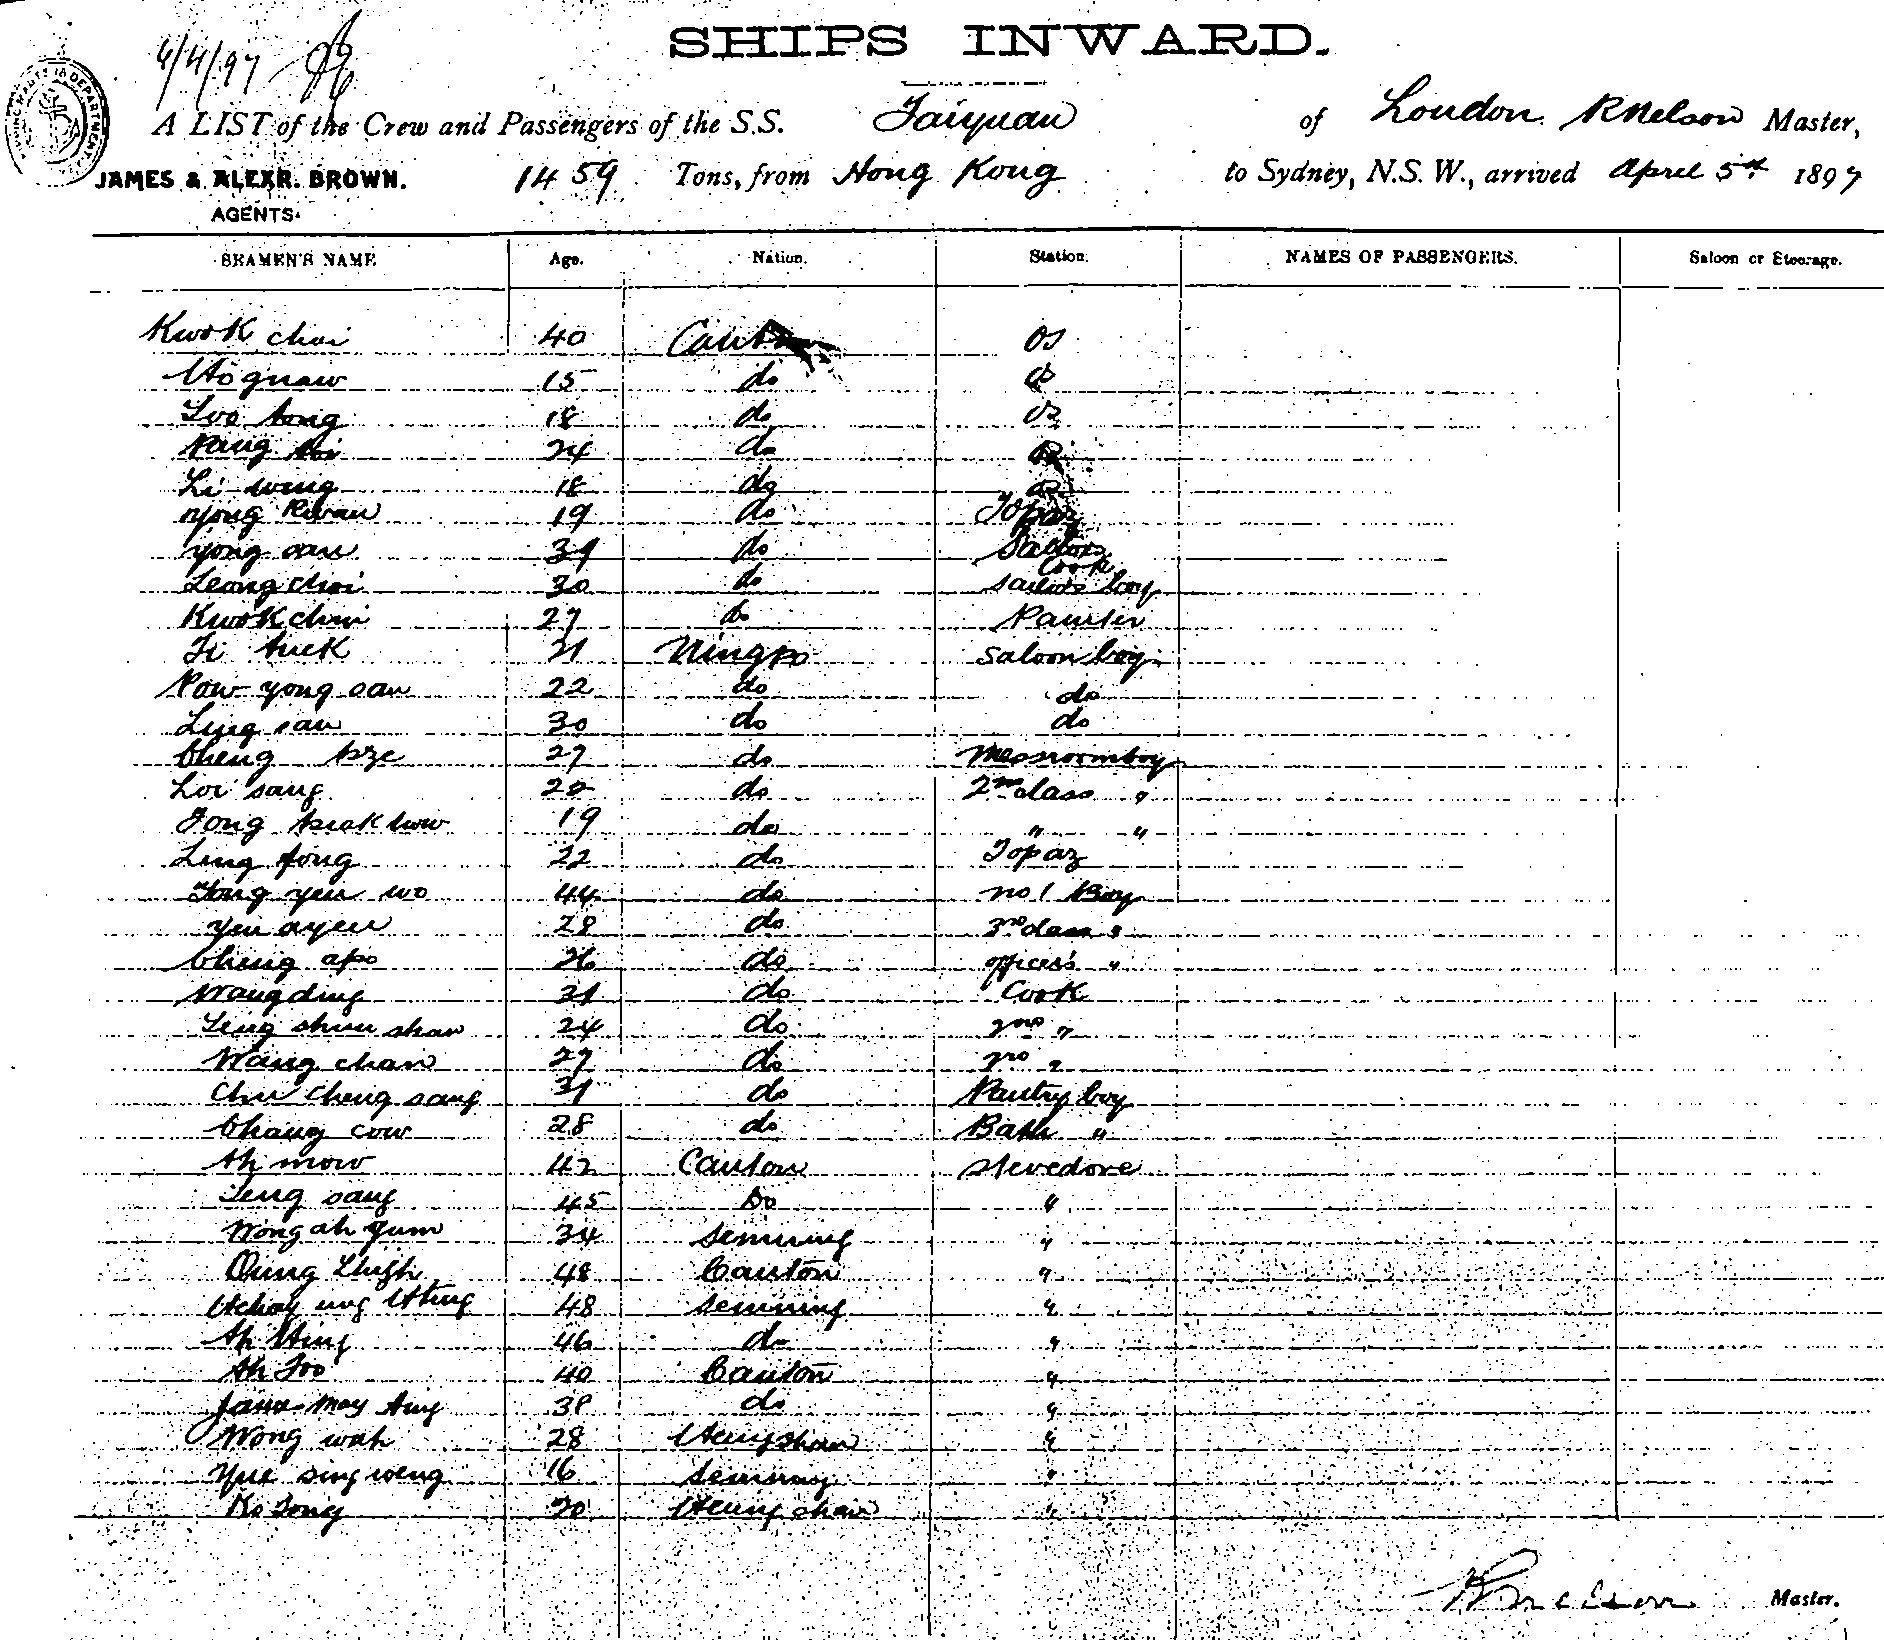 6/4/97
SHIPS INWARD.
A LIST of the Crew and Passengers of the S.S. Taiyuan of London R Nelson Master,
JAMES & ALEXR. BROWN. 1459 Tons, from Hong Kong to Sydney, N.S.W., arrived April 5th 1897
AGENTS.
SEAMEN'S NAME Age. Nation. Station. NAMES OF PASSENGERS. Saloon or Steerage.
Kwok choi 40 Canton OS
15 do
Loo tong 18 do OS
Pang 24 do
Li wing 18 do
Kwan 19 do Topaz
yong san 31 do Sailors Cook
Leong choi 30 do sailors boy
Kwok chin 27 do Painter
21 Ningpo Saloon boy
Pow yong san 22 do do
Ling san 30 do do
Cheng tsze 27 do Messroom boy
Loi sang 22 do 2nd class "
Tong 19 do " "
Ling fong 22 do Topaz
Tong yen wo 44 do no 1 Boy
yen ayen 28 do 3rd class "
Cheng apo 26 do officer's "
Wang ding 31 do Cook
Ling shun shaw 24 do 2nd "
Wang chan 27 do "
Chu Cheng sang 31 do Pantry boy
Chang cow 28 do Bath "
Ah mow 42 Canton stevedore
Leng sang 45 Do "
Wong ah gum 34 semning "
48 Canton "
48 semning "
Ah Hing 46 do "
Ah Foo 40 Canton "
may 38 do "
Wong wah 28 Heungshan "
Yue sing weng 16 semning "
Ko Tong 20 Heung shan "
R Nelson Master.